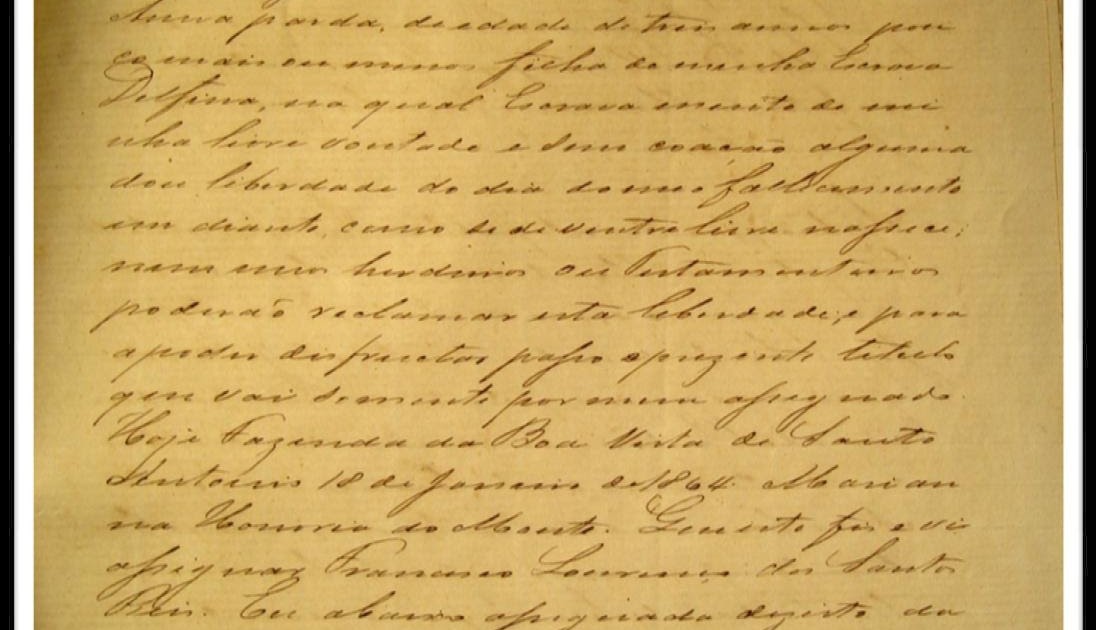 Anna parda, de edade de tres annos pou
co mais ou menos ficha de minha Escrava
Delfina, na qual Escrava de mi
nha livre vontade e sem coacção alguma
dou liberdade do dia do meu fallecimento
em diante, como se de ventre livre nascece;
nem meus herdeiros ou Testamenteiros
poderão reclamar esta liberdade, e para
a poder disfructar passo o prezente titulo
que vai somente por mim assignado.
Hoje Fazenda da Boa Vista de Santo
Antonio 18 de Janeiro de 1864. Marian
na Honoria do Monte. Que este fis e vi
assignar Francisco Lourenço dos Santos
Reis. Eu abaixo assignada da